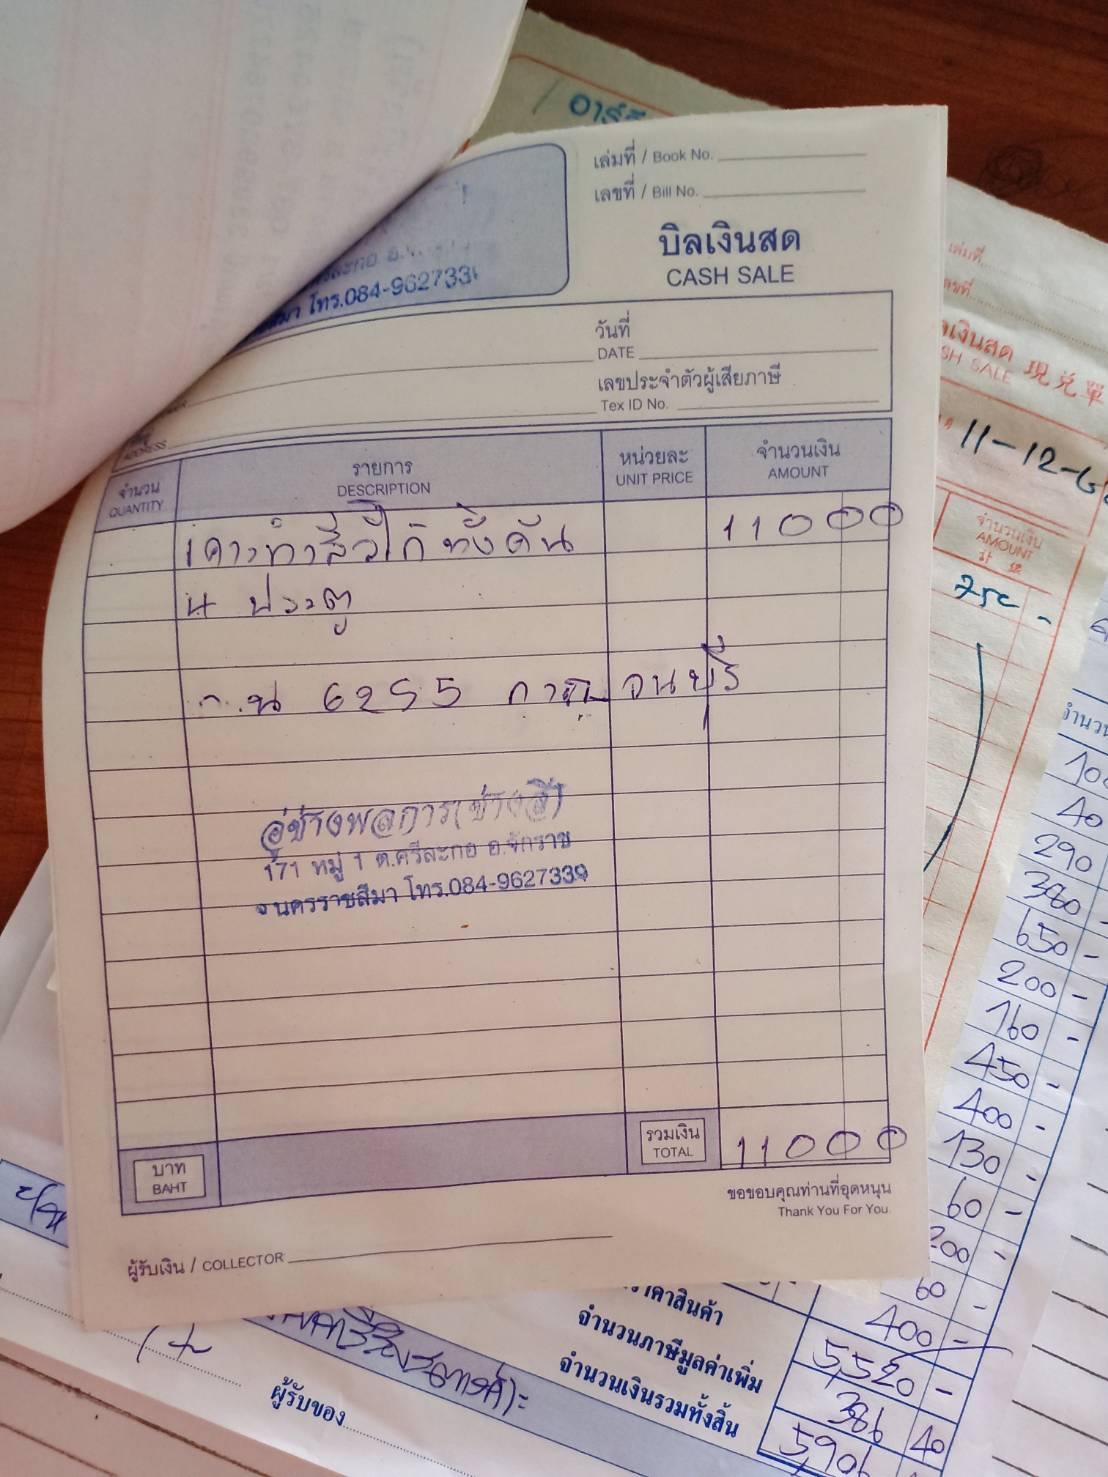 เล่มที่ / Book No.
เลขที่ / Bill No.
บิลเงินสด
CASH SALE
โทร.084-962733
วันที่
DATE
เลขประจำตัวผู้เสียภาษี
Tex ID No.
ADDRESS
จำนวน
QUANTITY
รายการ
DESCRIPTION
หน่วยละ
UNIT PRICE
จำนวนเงิน
AMOUNT
เคาะทำสีวีโก้ทั้งคัน 11000
4 ประตู
6255 กาญจนบุรี
อู่ช่างพลการ(ช่างลี)
171 หมู่ 1 ต.ศรีละกอ อ.จักราช
จ.นครราชสีมา โทร.084-9627339
บาท
BAHT
รวมเงิน
TOTAL
11000
ขอขอบคุณท่านที่อุดหนุน
Thank You For You.
ผู้รับเงิน / COLLECTOR
เล่มที่
CASH SALE 現兌單
11-12-
จำนวนเงิน
AMOUNT
750 -
290
380 -
650 -
200 -
160 -
450 -
400 -
130 -
60 -
200 -
60 -
400 -
ราคาสินค้า 5,520 -
จำนวนภาษีมูลค่าเพิ่ม 386 40
จำนวนเงินรวมทั้งสิ้น 5,906
ผู้รับของ